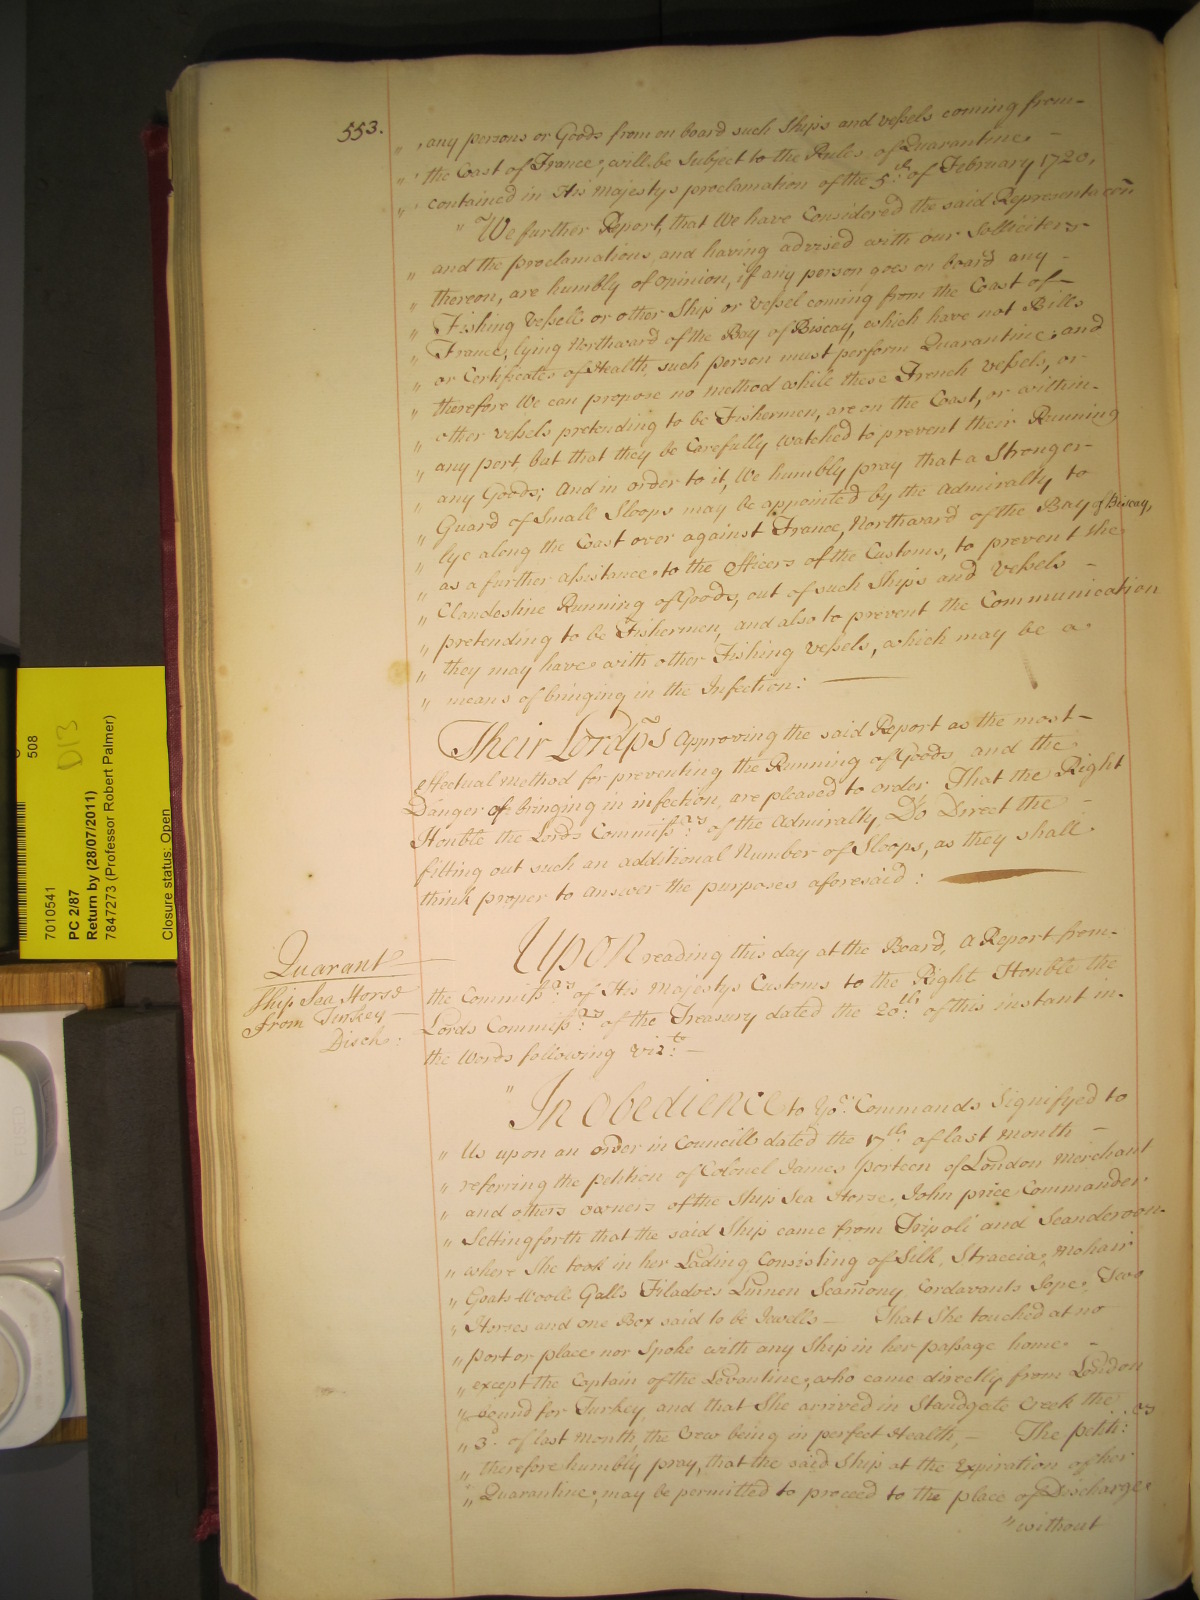 553.
" any persons or Goods from on board such Ships and veſsels coming from-
" the Coast of France, will be Subject to the Rules of Quarantine -
" contained in His Majestys proclamation of the 5th. of February 1720.
" We further Report, that We have Considered the said Representacon
" and the proclamations, and having advised with our Solliciters-
" thereon, are humbly of opinion, if any person goes on board any -
" Fishing Veſsell or other Ship or Veſsel coming from the Coast of-
" France, lying Northward of the Bay of Biscay, which have not Bills
" or Certificates of Health, such person must perform Quarantine; and
" therefore We can propose no method while these French veſsels, or
" other veſsels pretending to be Fishermen, are on the Coast, or within-
" any port, but that they be Carefully watched to prevent their Running
" any Goods; And in order to it, We humbly pray that a Stronger-
" Guard of Small Sloops may be appointed by the Admiralty to
" lye along the Coast over against France, Northward of the Bay of Biscay,
" as a further aſsistance to the officers of the Customs, to prevent the
" Clandestine Running of Goods, out of such Ships and Veſsels -
" pretending to be Fishermen, and also to prevent the Communication
" they may have with other Fishing Veſsels, which may be a
" means of bringing in the Infection: —
Their Lordps Approving the said Report as the most-
effectual method for preventing the Running of Goods and the
Danger of bringing in infection, are pleased to order, That the Right
Honble the Lords Commiſsrs. of the Admiralty, Do Direct the -
fitting out such an additional Number of Sloops, as they shall
think proper to answer the purposes aforesaid: —
Quarante
Ship Sea Horse
from Turkey -
Disch:
UPON reading this day at the Board, a Report from-
the Commiſsrs. of His Majestys Customs to the Right Honble the
Lords Commiſsrs. of the Treasury dated the 20th. of this instant in-
the Words following vizt. -
" In Obedience to Yor. Commands Signifyed to
" Us upon an order in Councill dated the 17th. of last month -
" referring the petition of Colonel James Porteen of London Merchant
" and others owners of the Ship Sea Horse, John price Commander
" Setting forth that the said Ship came from Tripoli and Scanderoon-
" where She took in her Lading Consisting of Silk, Straccia, Mohair
" Goats Wooll Galls Filadoes Linnen Scamony, Cordavants Sope, Two
" Horses and one Box said to be Jewells - That She touched at no
" port or place nor Spoke with any Ship in her paſsage home -
" except the Captain of the Levantine, who came directly from London
" bound for Turkey, and that She arrived in Standgate Creek the
" 3d. of last month, the Crew being in perfect Health, - The petit:rs
" therefore humbly pray, that the said Ship at the Expiration of her
" Quarantine, may be permitted to proceed to the place of Discharge
" without
508
D13
7010541
PC 2/87
Return by (28/07/2011)
7847273 (Professor Robert Palmer)
Closure status: Open
FUSED